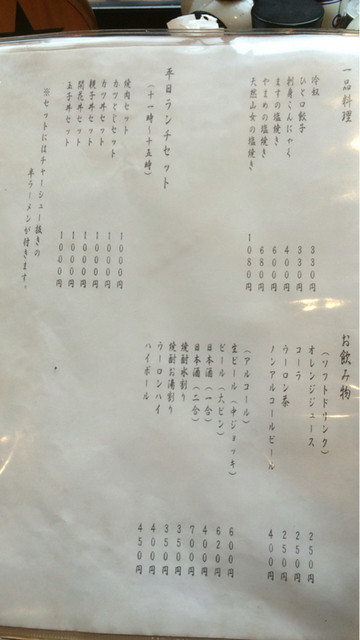 一品料理
冷奴 330円
ひと口餃子 330円
刺身こんにゃく 400円
ますの塩焼き 600円
やまめの塩焼き 680円
天然山女の塩焼き 1080円
平日ランチセット
(十一時〜十五時)
焼肉セット 1000円
カツとじセット 1000円
カツ丼セット 1000円
親子丼セット 1000円
開花丼セット 1000円
玉子丼セット 1000円
※セットにはチャーシュー抜きの
半ラーメンが付きます。
お飲み物
(ソフトドリンク)
オレンジジュース 250円
コーラ 250円
ウーロン茶 250円
ノンアルコールビール 400円
(アルコール)
生ビール(中ジョッキ) 600円
ビール(大ビン) 620円
日本酒(一合) 400円
日本酒(二合) 700円
焼酎水割り 350円
焼酎お湯割り 350円
ウーロンハイ 400円
ハイボール 450円